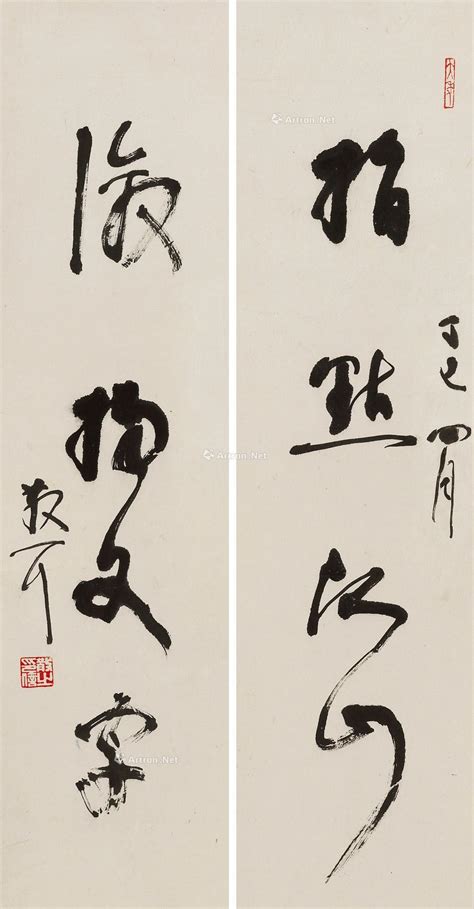 指點江山
丁巳四月
激揚文字
散耳
Artron.Net
Artron.Net
Artron.Net
Artron.Net